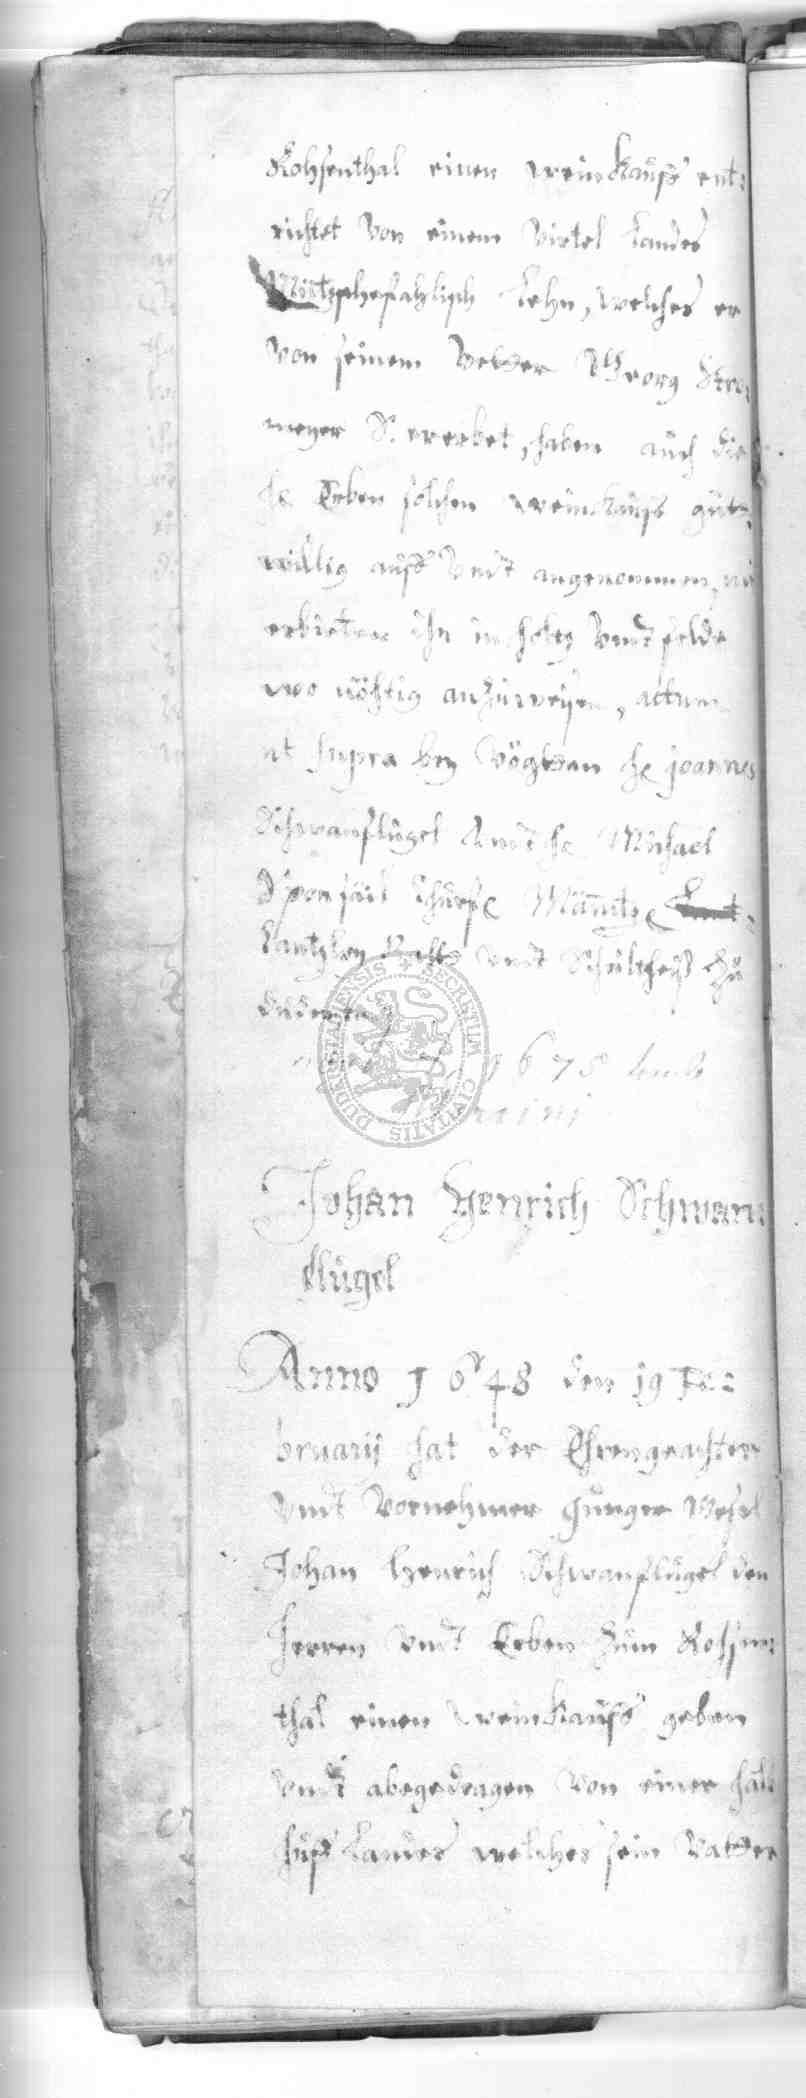 Rohsenthal einen weinkauffs ent:
richtet von einem virtel Landes
Lehn, welches er
von seinem vetter Georg Stro:
meyer S. ererbet, haben auch die
H. Erben solchen weinkauffs gut:
willig auff undt angenommen,
erbieten ihn in holtz undt felde
wo nöhtig anzuweisen, actum
ut supra bey vögten H. Joannes
Schwanflügel undt H. Michael
Churf. Mäintz.
Cantzley undt Schultheis zu
1675
Johan Henrich Schwan:
flügel
Anno 1648 den 19 Fe:
bruarij hat der Ehrengeachter
undt vornehmer
Johan Henrich Schwanflügel den
Herren undt Erben zum Rohsen:
thal einen weinkauffs geben
undt abgedragen von einer halb
huff Landes welches sein vatter
SECRETUM CIVITATIS DUDERSTADIENSIS